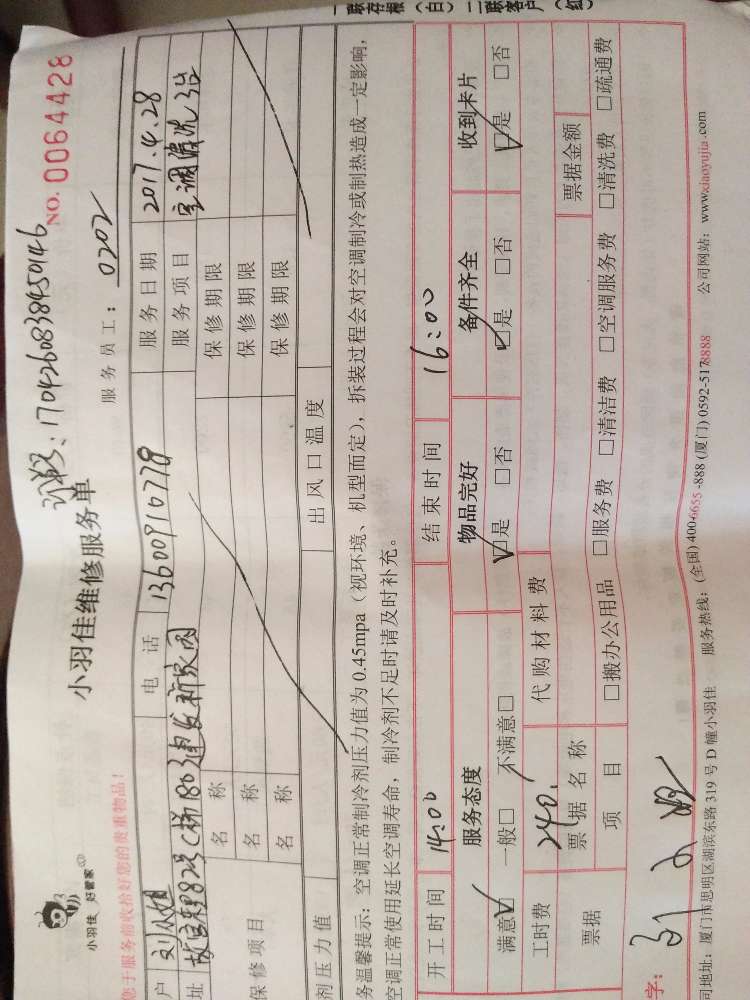 一联存根（白） 二联客户（红）
小羽佳 好管家
小羽佳维修服务单
订单号：1704260838450146
NO. 0064428
您于服务前收拾好您的贵重物品！
服务员工：0202
户 刘小姐 电话 13600910778 服务日期 2017.4.28
址 82号C梯803建发新家园 服务项目 空调清洗3台
保修项目 名称 保修期限
名称 保修期限
名称 保修期限
剂压力值 出风口温度
务温馨提示：空调正常制冷剂压力值为 0.45mpa（视环境、机型而定），拆装过程会对空调制冷或制热造成一定影响，
空调正常使用延长空调寿命，制冷剂不足时请及时补充。
开工时间 14:00 结束时间 16:00
服务态度 物品完好 备件齐全 收到卡片
满意☑ 一般□ 不满意□ ☑是 □否 ☑是 □否 ☑是 □否
工时费 240. 代购材料费
票据 票据名称 票据金额
项目 □搬办公用品 □服务费 □清洁费 □空调服务费 □清洗费 □疏通费
字：
司地址：厦门市思明区湖滨东路 319 号 D 幢小羽佳 服务热线：(全国) 400-6655-888 (厦门) 0592-5178888 公司网站：www.xiaoyujia.com